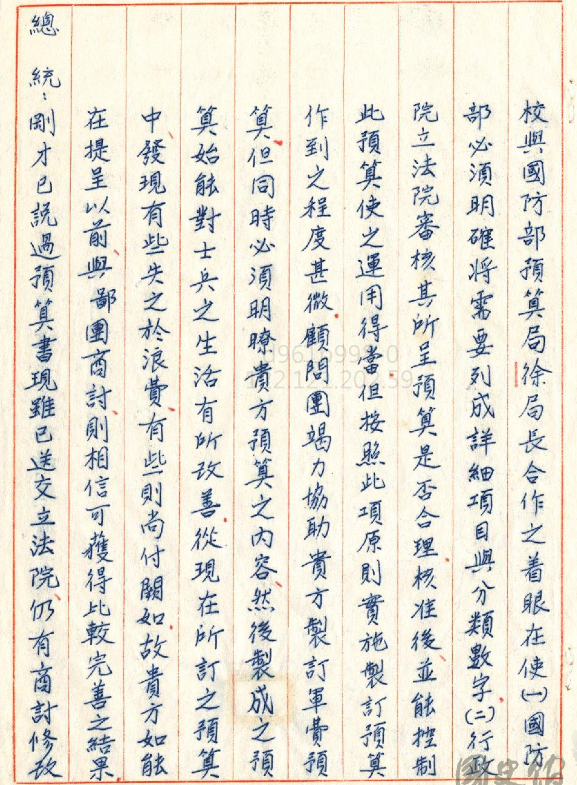 校與國防部預算局徐局長合作之着眼在使(一)國防
部必須明確將需要列成詳細項目與分類數字(二)行政
院立法院審核其所呈預算是否合理核准後並能控制
此預算使之運用得當但按照此項原則實施製訂預算
作到之程度甚微顧問團竭力協助貴方製訂軍費預
算但同時必須明瞭貴方預算之內容然後製成之預
算始能對士兵之生活有所改善從現在所訂之預算
中發現有些失之於浪費有些則尚付闕如故貴方如能
在提呈以前與鄙團商討則相信可獲得比較完善之結果
總統:剛才已說過預算書現雖已送交立法院仍有商討修改
國史館